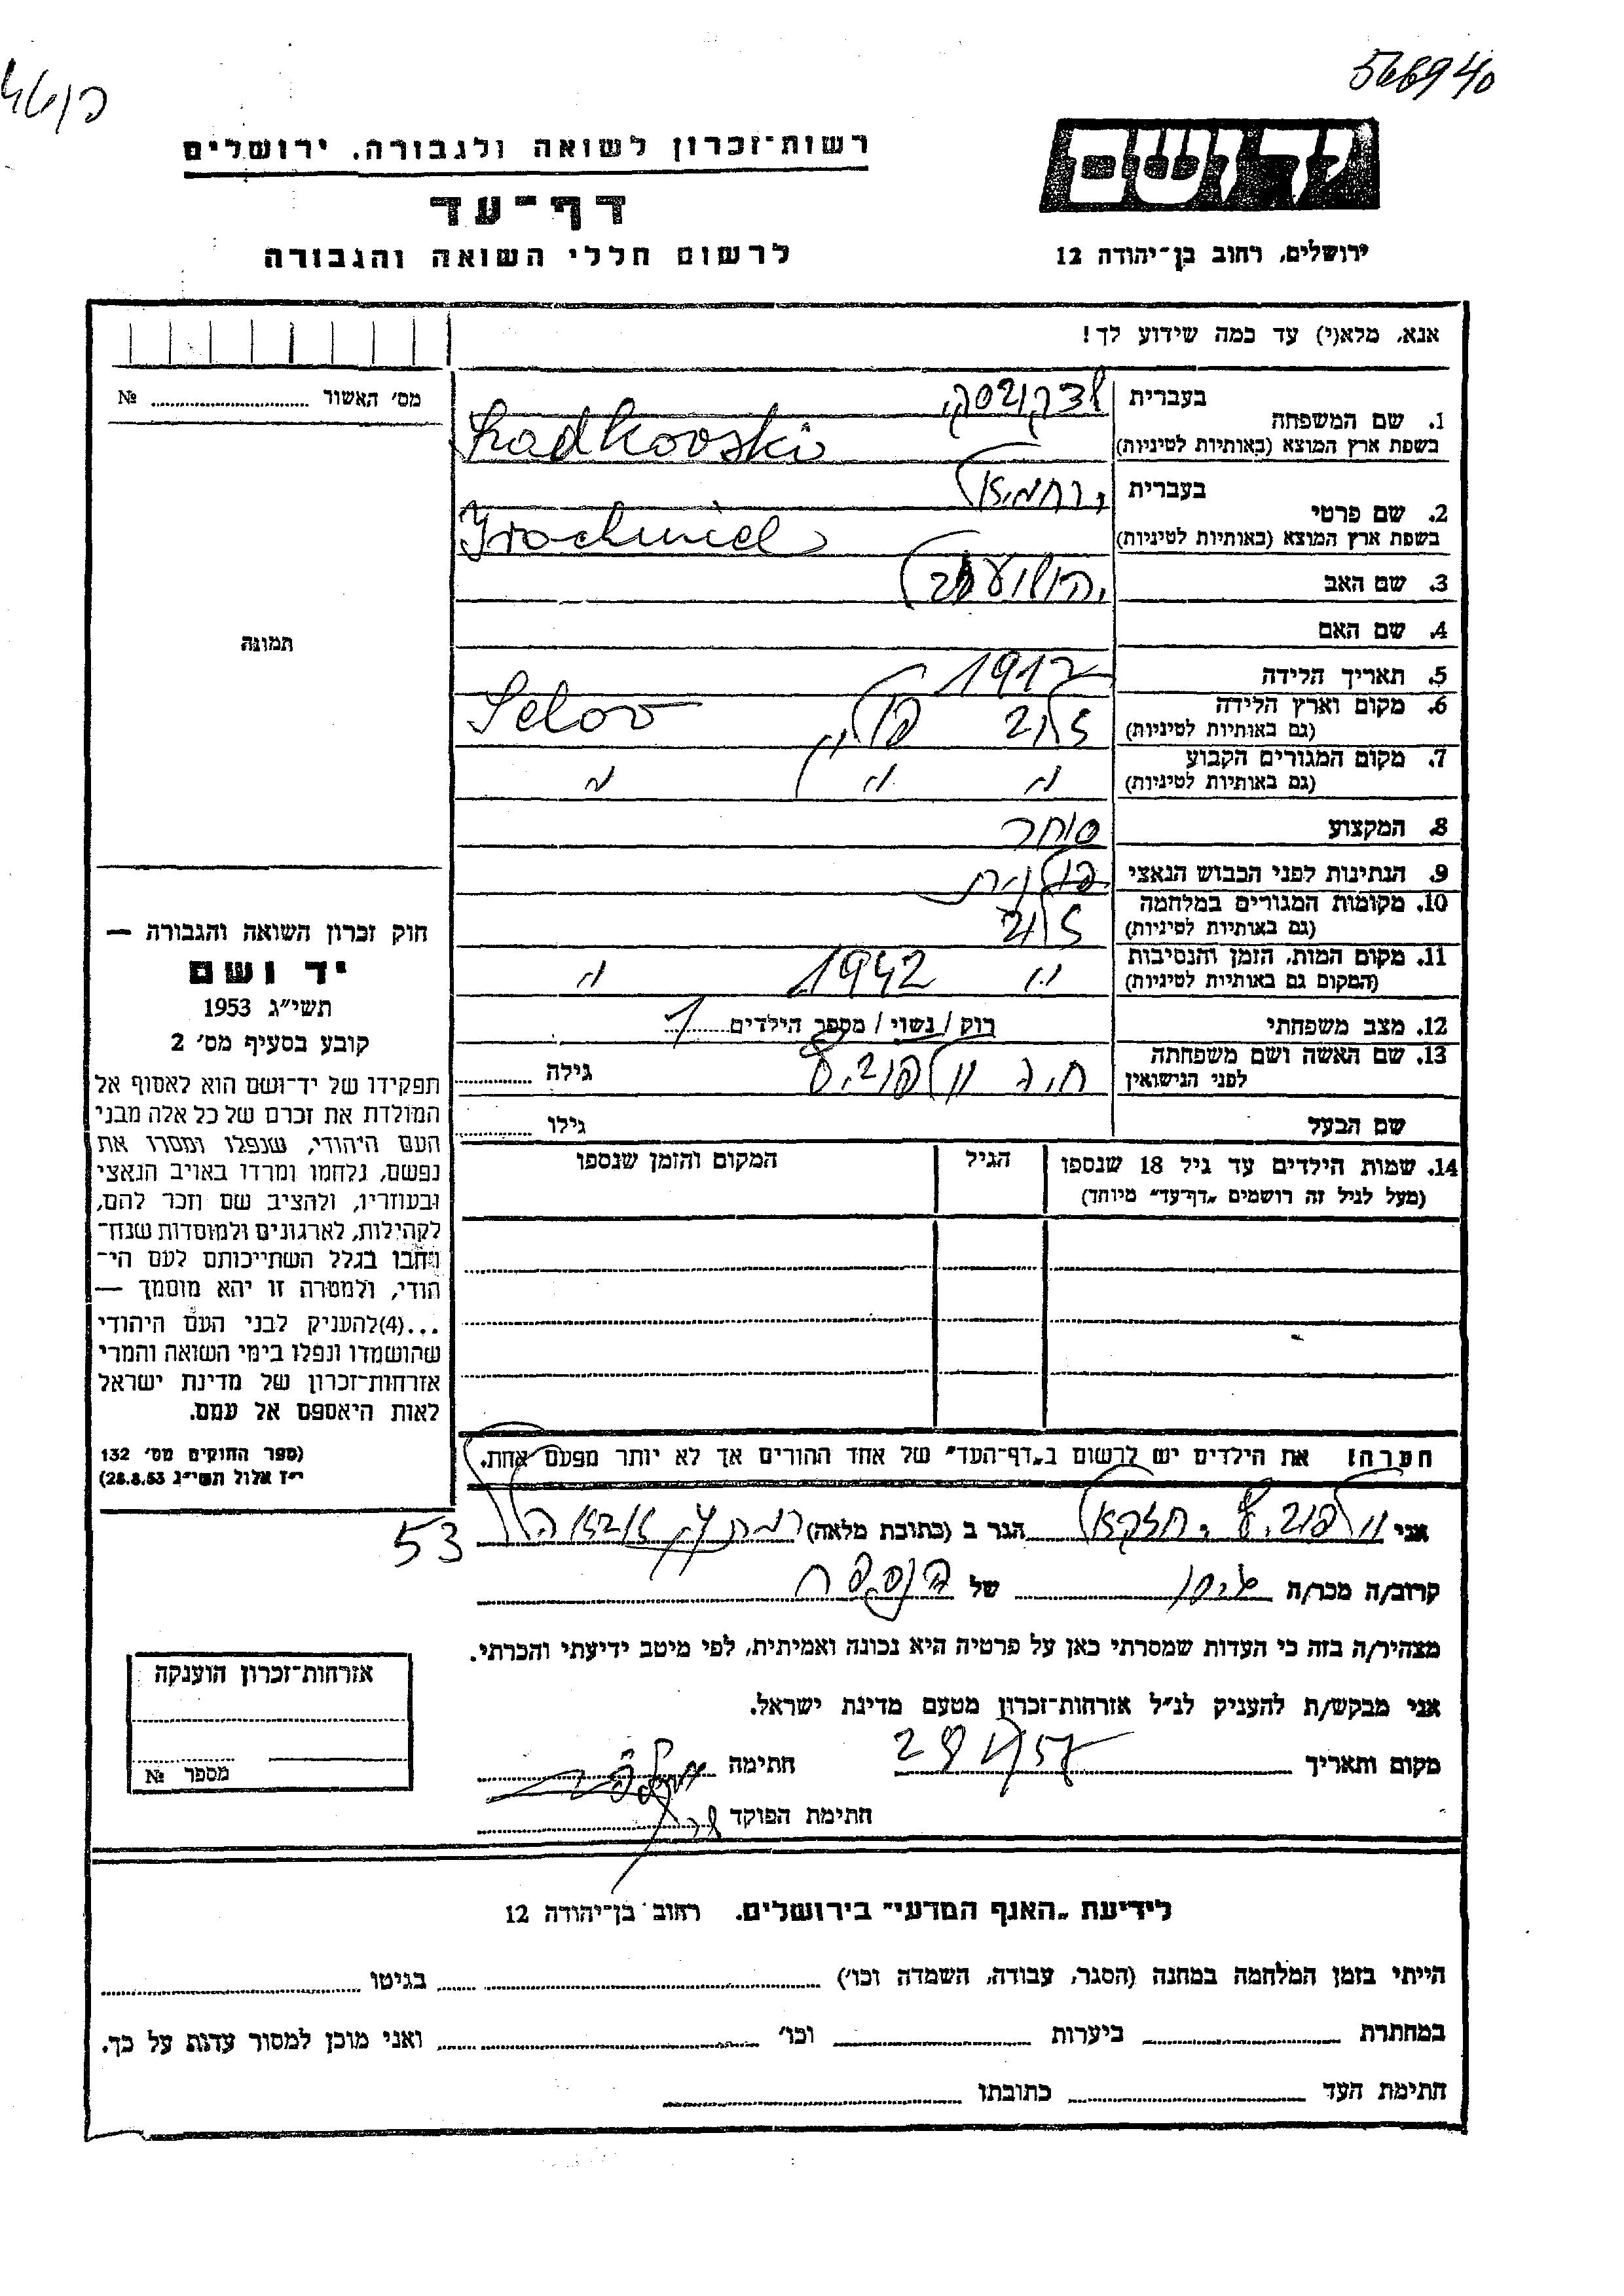 566940
רשות-זכרון לשואה ולגבורה. ירושלים
יד ושם
דף-עד
לרשום חללי השואה והגבורה
ירושלים, רחוב בן-יהודה 12
אנא, מלא(י) עד כמה שידוע לך!
מס׳ האשור № ........
1. שם המשפחה
בעברית
בשפת ארץ המוצא (באותיות לטיניות)
2. שם פרטי
בעברית ירחמיאל
בשפת ארץ המוצא (באותיות לטיניות) Irachmiel
3. שם האב
4. שם האם
5. תאריך הלידה 1912
6. מקום וארץ הלידה
(גם באותיות לטיניות) זלוב פולין Selov
7. מקום המגורים הקבוע
(גם באותיות לטיניות) " " "
8. המקצוע סוחר
9. הנתינות לפני הכבוש הנאצי פולנית
10. מקומות המגורים במלחמה
(גם באותיות לטיניות) זלוב
11. מקום המות, הזמן והנסיבות
(המקום גם באותיות לטיניות) " 1942 "
12. מצב משפחתי רוק / נשוי / מספר הילדים 1
13. שם האשה ושם משפחתה
לפני הנישואין גילה ........
שם הבעל גילו ........
14. שמות הילדים עד גיל 18 שנספו
(מעל לגיל זה רושמים „דף-עד" מיוחד)
הגיל
המקום והזמן שנספו
תמונה
חוק זכרון השואה והגבורה —
יד ושם
תשי״ג 1953
קובע בסעיף מס׳ 2
תפקידו של יד-ושם הוא לאסוף אל
המולדת את זכרם של כל אלה מבני
העם היהודי, שנפלו ומסרו את
נפשם, נלחמו ומרדו באויב הנאצי
ובעוזריו, ולהציב שם וזכר להם,
לקהילות, לארגונים ולמוסדות שנח־
רבו בגלל השתייכותם לעם הי־
הודי, ולמטרה זו יהא מוסמך —
...(4) להעניק לבני העם היהודי
שהושמדו ונפלו בימי השואה והמרי
אזרחות-זכרון של מדינת ישראל
לאות היאספם אל עמם.
(ספר החוקים מס׳ 132
י״ז אלול תשי״ג 28.8.53)
הערה! את הילדים יש לרשום ב„דף-העד" של אחד ההורים אך לא יותר מפעם אחת.
אני יחזקאל הגר ב (כתובת מלאה) רמת גן 53
קרוב/ה מכר/ה גיסו של הנספה
מצהיר/ה בזה כי העדות שמסרתי כאן על פרטיה היא נכונה ואמיתית, לפי מיטב ידיעתי והכרתי.
אני מבקש/ת להעניק לנ״ל אזרחות-זכרון מטעם מדינת ישראל.
מקום ותאריך חתימה
חתימת הפוקד
אזרחות-זכרון הוענקה
מספר №
לידיעת „האגף המדעי" בירושלים. רחוב בן-יהודה 12
הייתי בזמן המלחמה במחנה (הסגר, עבודה, השמדה וכו׳) ........ בגיטו ........
במחתרת ........ ביערות ........ וכו׳ ........ ואני מוכן למסור עדות על כך.
חתימת העד ........ כתובתו ........